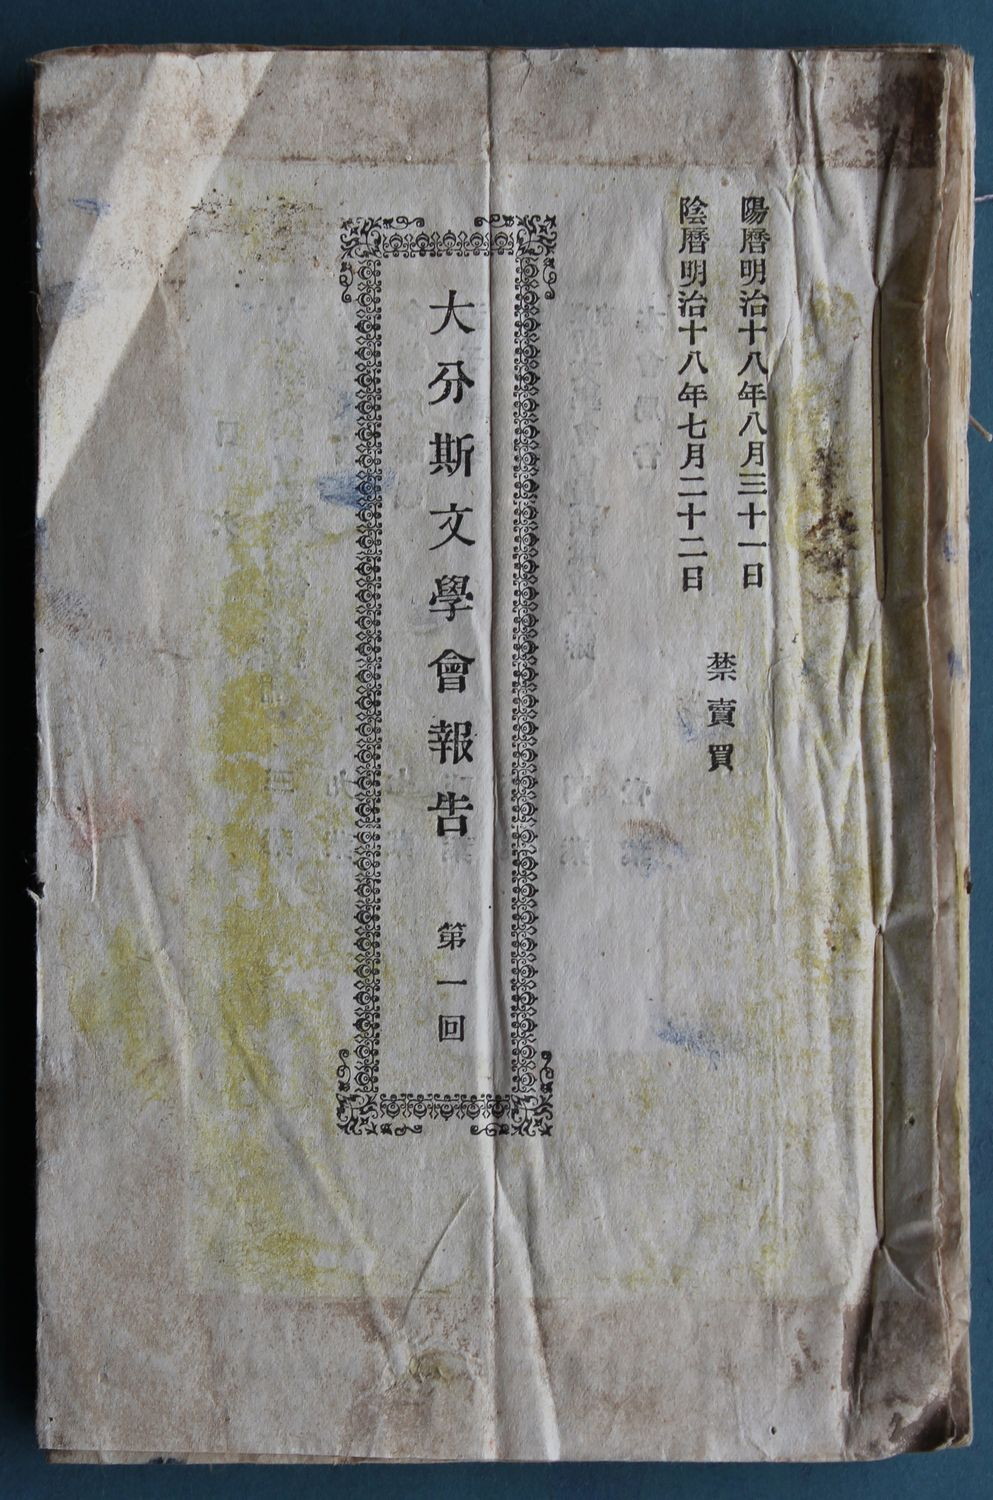 陽曆明治十八年八月三十一日
陰曆明治十八年七月二十二日
禁賣買
大分斯文學會報告 第一回